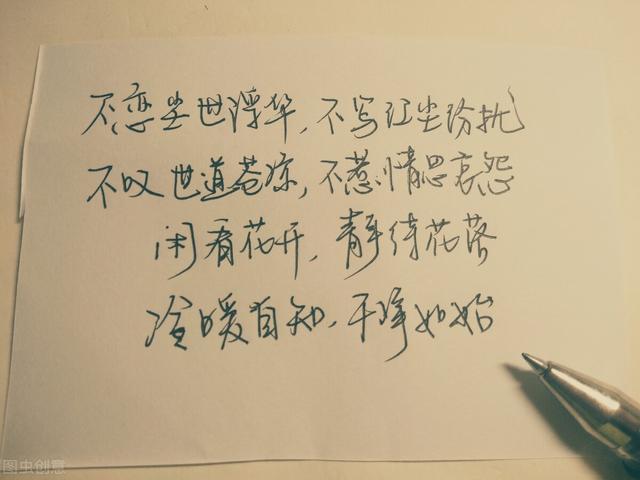 不恋尘世浮华,不写红尘纷扰
不叹世道苍凉,不惹情思哀怨
闲看花开,静待花落
冷暖自知,干净如始
图虫创意